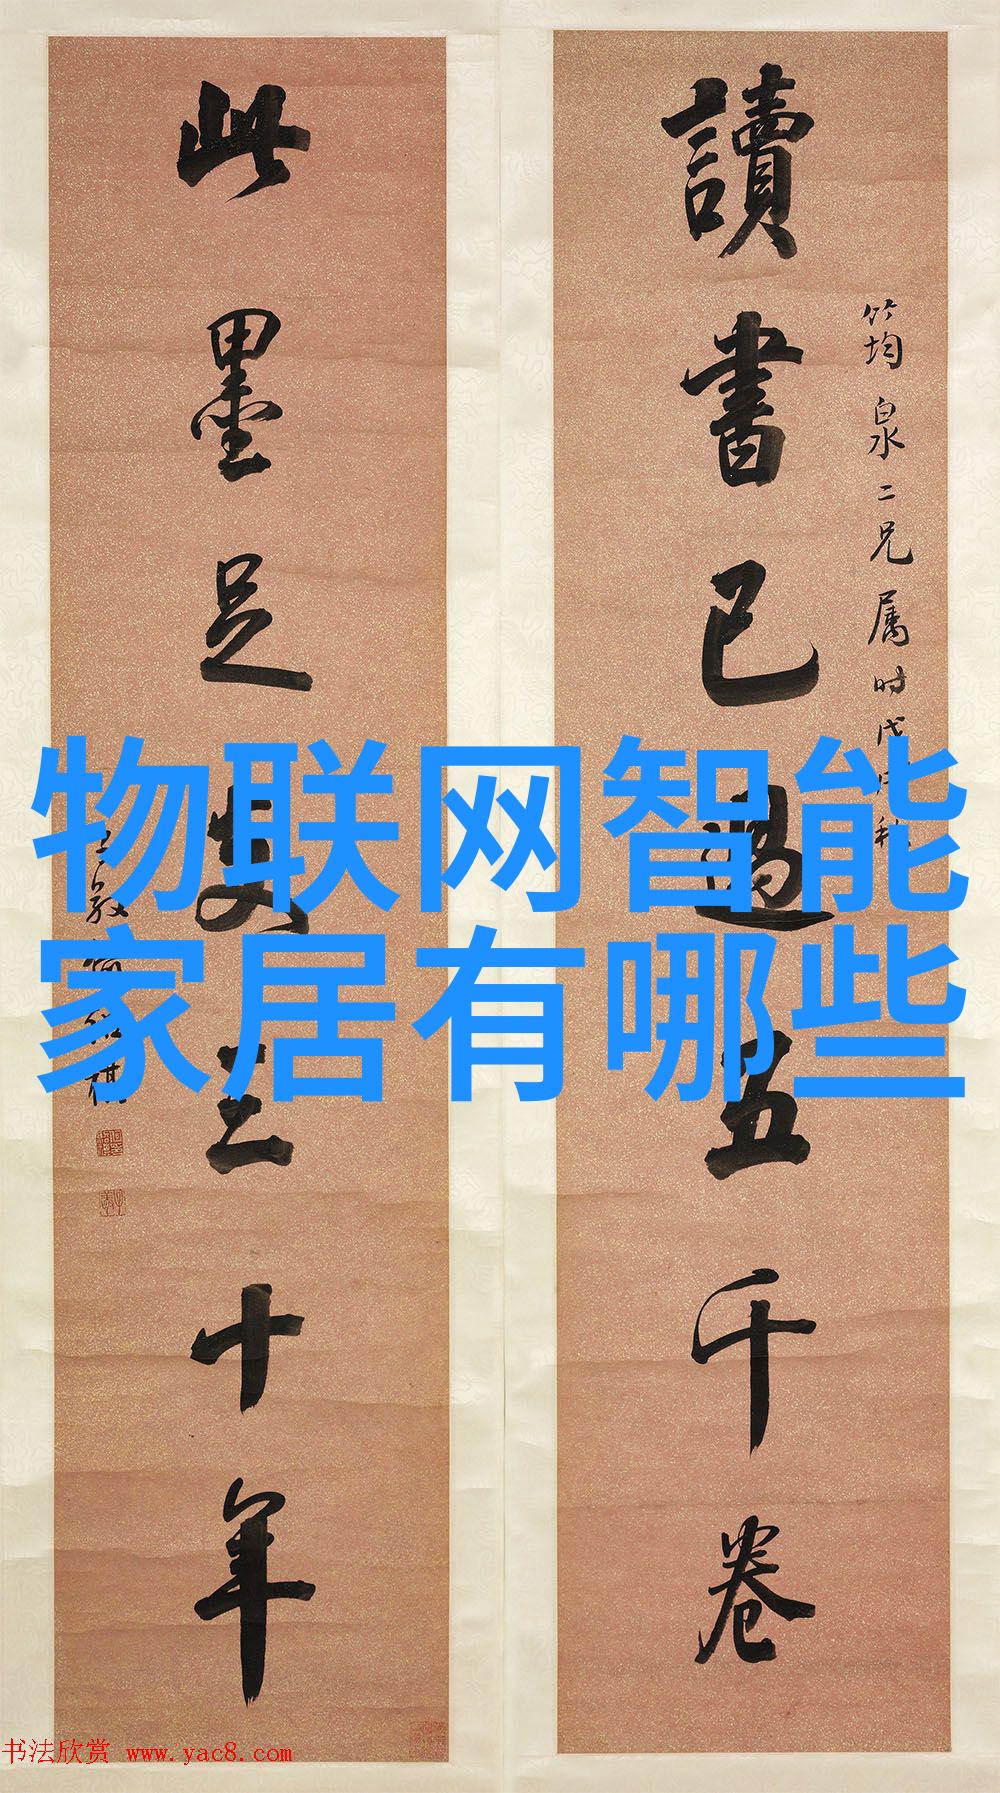 讀書已過五千卷
筠泉二兄属时戊
此墨足支三十年
物联网智能
家居有哪些
书法欣赏 www.yac8.com